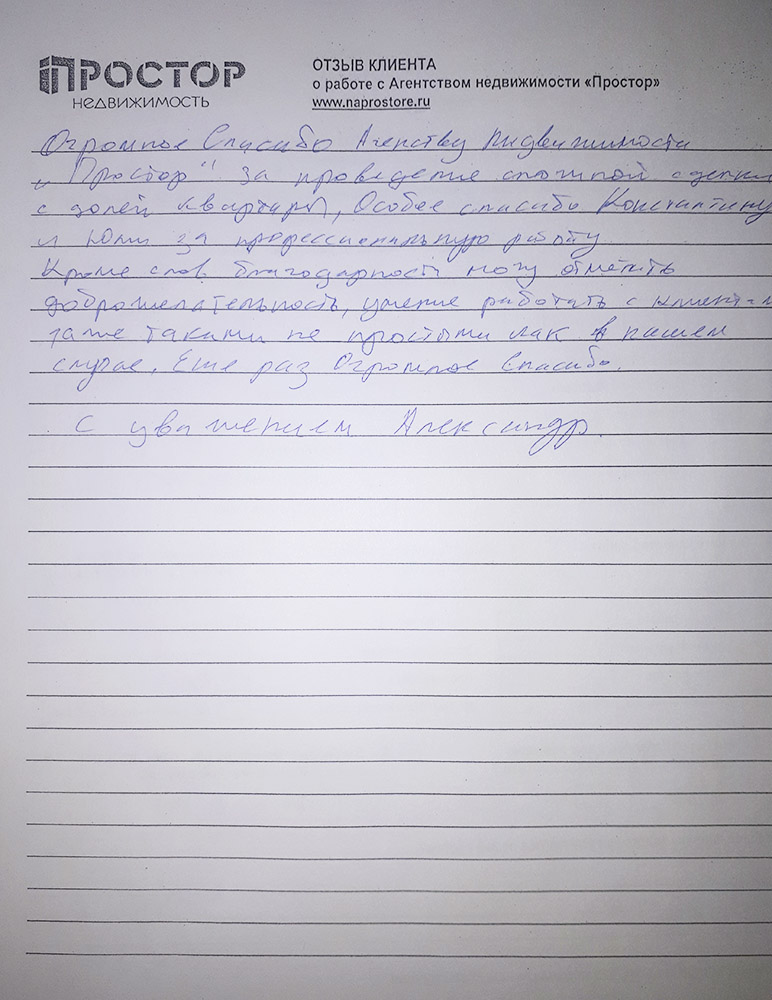 ПРОСТОР
НЕДВИЖИМОСТЬ
ОТЗЫВ КЛИЕНТА
о работе с Агентством недвижимости «Простор»
www.naprostore.ru
Огромное Спасибо Агенству Недвижимости
„Простор" за проведение сложной сделки
с долей квартиры, Особее спасибо Константину
и Юлии за профессиональную работу.
Кроме слов благодарности могу отметить
доброжелательность, умение работать с
даже такими не простыми как в нашем
случае. Еще раз Огромное Спасибо.
С уважением Александр.